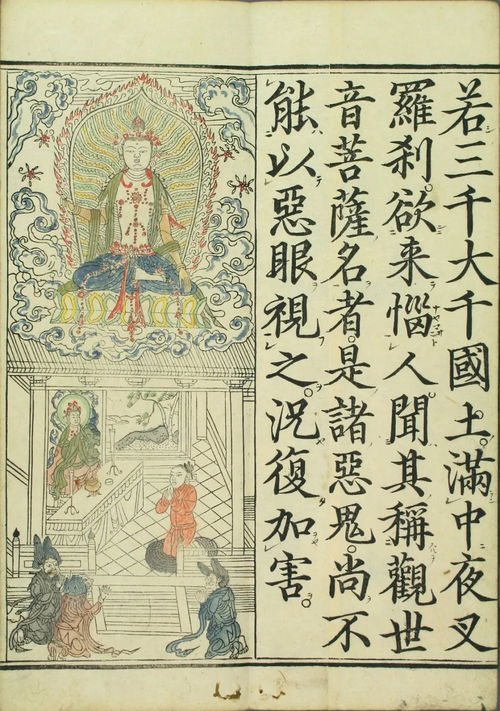 若三千大千國土。滿中夜叉
羅刹。欲来惱人。聞其稱觀世
音菩薩名者。是諸惡鬼。尚不
能以惡眼視之。況復加害。